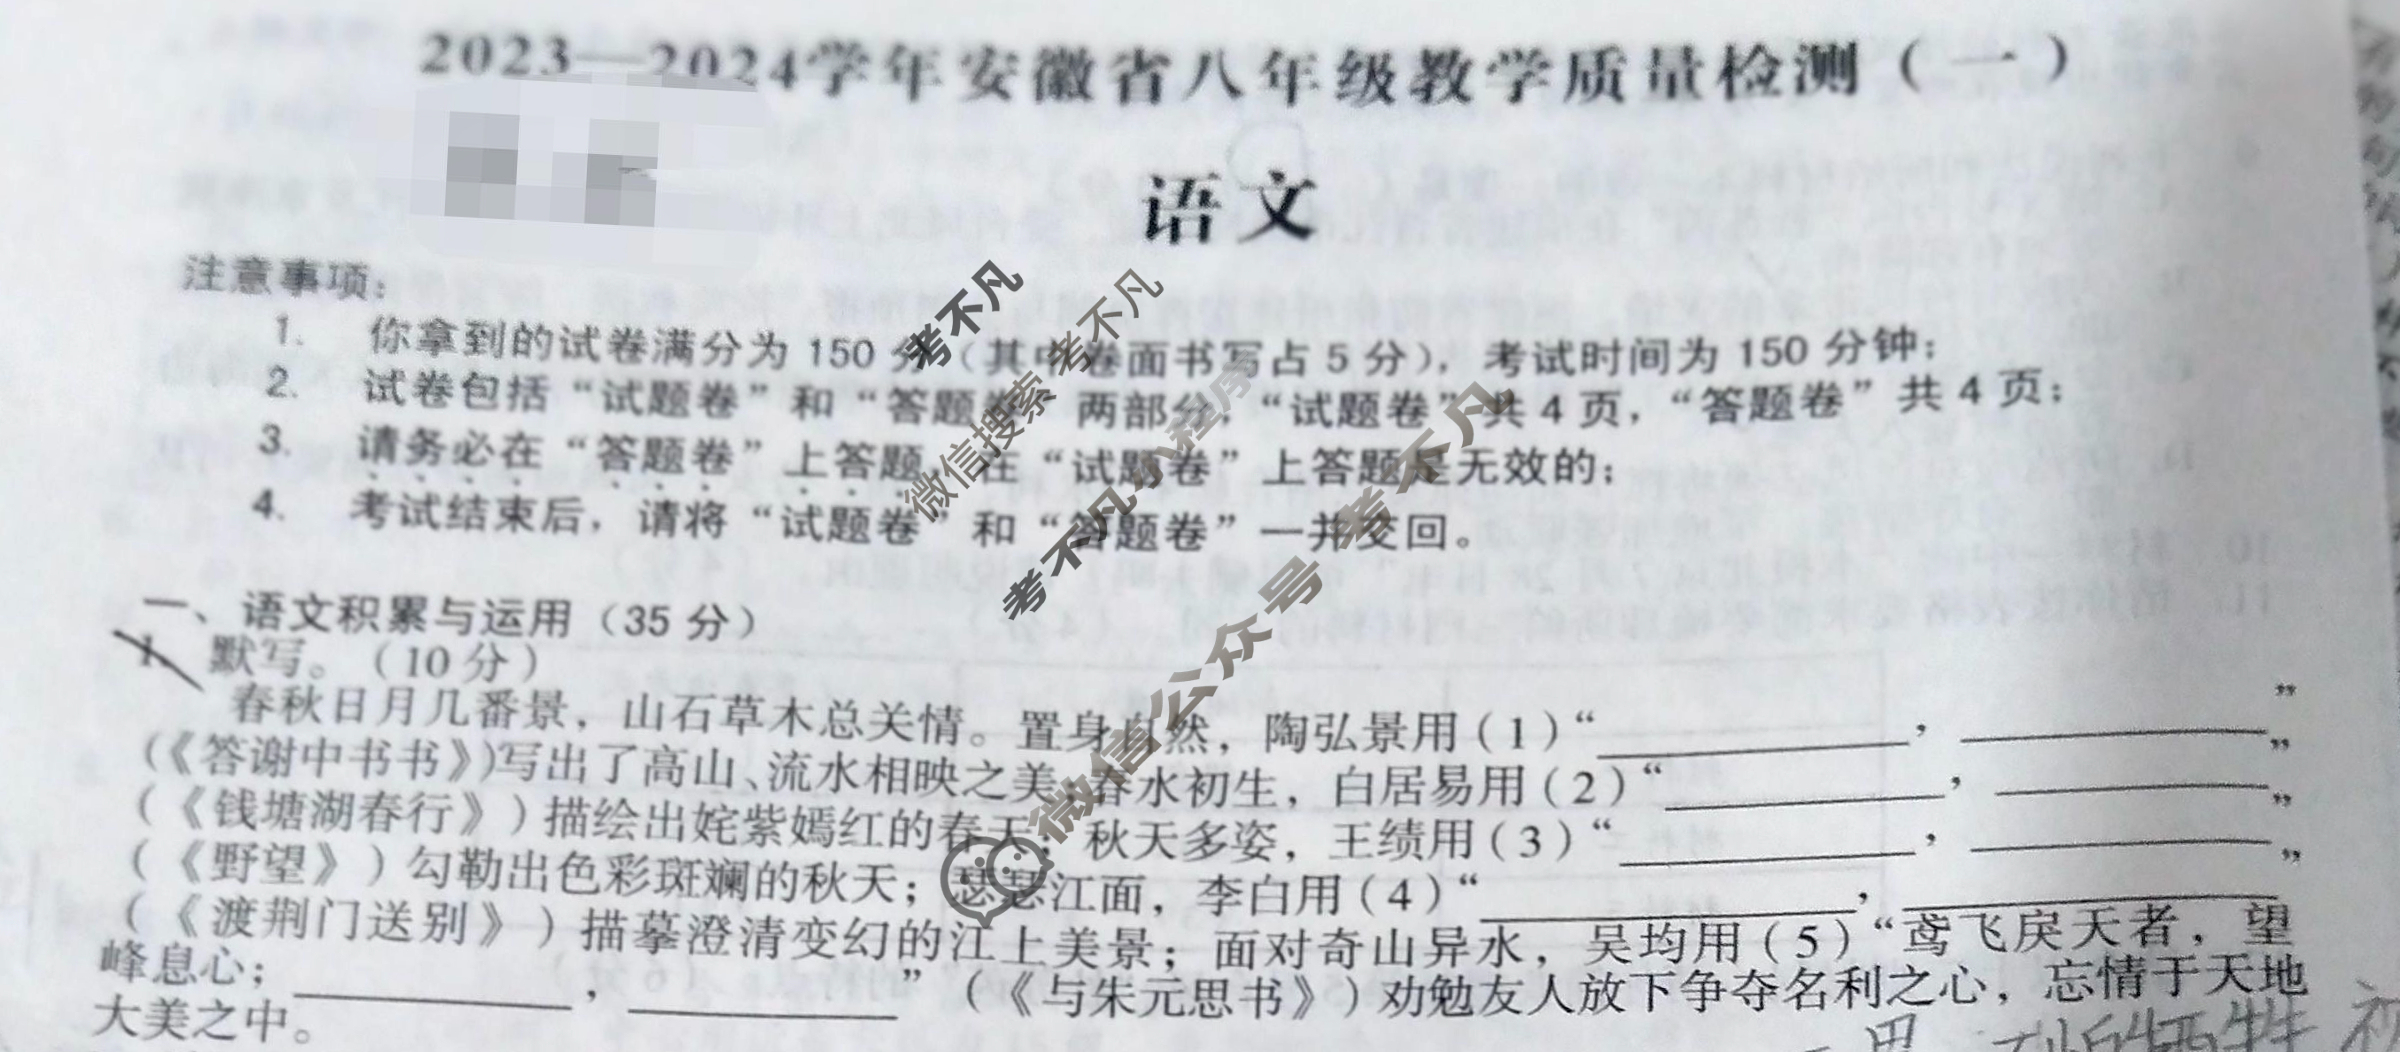 2023—2024学年安徽省八年级教学质量检测（一）
语文
注意事项：
1. 你拿到的试卷满分为 150 分（其中卷面书写占 5 分），考试时间为 150 分钟；
2. 试卷包括“试题卷”和“答题卷”两部分，“试题卷”共 4 页，“答题卷”共 4 页；
3. 请务必在“答题卷”上答题，在“试题卷”上答题是无效的；
4. 考试结束后，请将“试题卷”和“答题卷”一并交回。
一、语文积累与运用（35 分）
1. 默写。（10 分）
春秋日月几番景，山石草木总关情。置身自然，陶弘景用（1）“________，________”
（《答谢中书书》）写出了高山、流水相映之美；春水初生，白居易用（2）“________，________”
（《钱塘湖春行》）描绘出姹紫嫣红的春天；秋天多姿，王绩用（3）“________，________”
（《野望》）勾勒出色彩斑斓的秋天；瑟瑟江面，李白用（4）“________，________”
（《渡荆门送别》）描摹澄清变幻的江上美景；面对奇山异水，吴均用（5）“鸢飞戾天者，望
峰息心；________，________”（《与朱元思书》）劝勉友人放下争夺名利之心，忘情于天地
大美之中。
考不凡
微信搜索 考不凡
考不凡小程序
微信公众号 考不凡